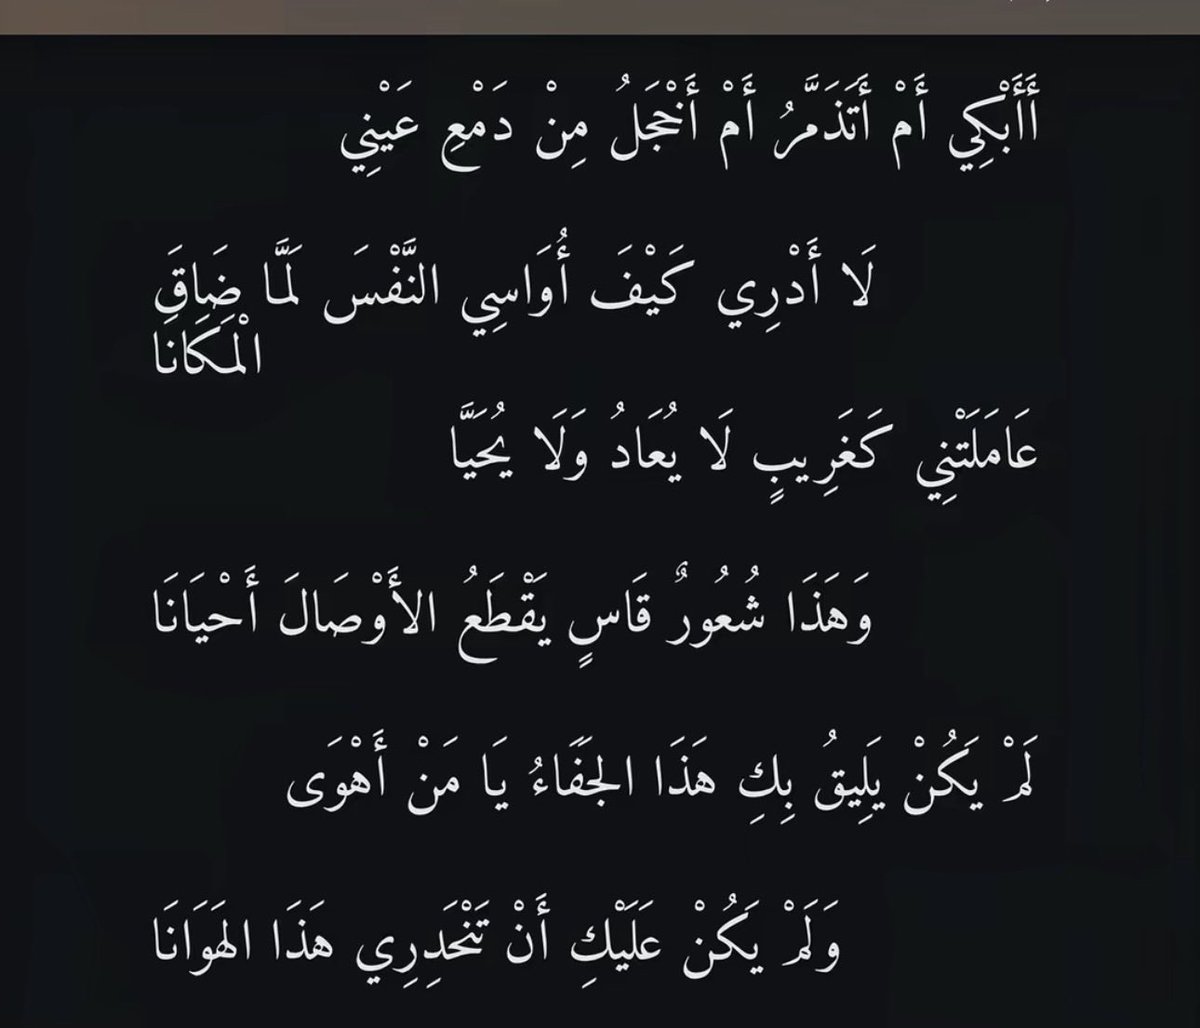 أَأَبْكِي أَمْ أَتَذَمَّرُ أَمْ أَخْجَلُ مِنْ دَمْعِ عَيْنِي
لَا أَدْرِي كَيْفَ أُوَاسِي النَّفْسَ لَمَّا ضَاقَ
الْمَكَانَا
عَامَلَتْنِي كَغَرِيبٍ لَا يُعَادُ وَلَا يُحَيَّا
وَهَذَا شُعُورٌ قَاسٍ يَقْطَعُ الأَوْصَالَ أَحْيَانَا
لَمْ يَكُنْ يَلِيقُ بِكِ هَذَا الجَفَاءُ يَا مَنْ أَهْوَى
وَلَمْ يَكُنْ عَلَيْكِ أَنْ تَنْحَدِرِي هَذَا الهَوَانَا